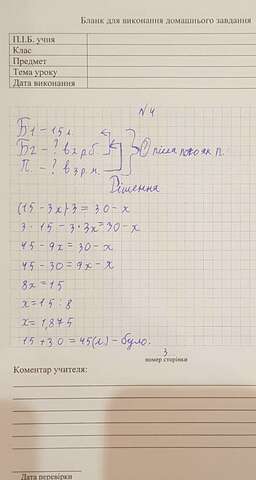 Бланк для виконання домашнього завдання
П.І.Б. учня
Клас
Предмет
Тема уроку
Дата виконання
№ 4
Б1 – 15 л.
Б2 – ? в 2 р. б
П – ? в 3 р. м.
Рішення
(15 – 3x)·3 = 30 – x
3 · 15 – 3 · 3x = 30 – x
45 – 9x = 30 – x
45 – 30 = 9x – x
8x = 15
x = 15 : 8
x = 1,875
15 + 30 = 45 (л) – було.
3
номер сторінки
Коментар учителя:
Дата перевірки